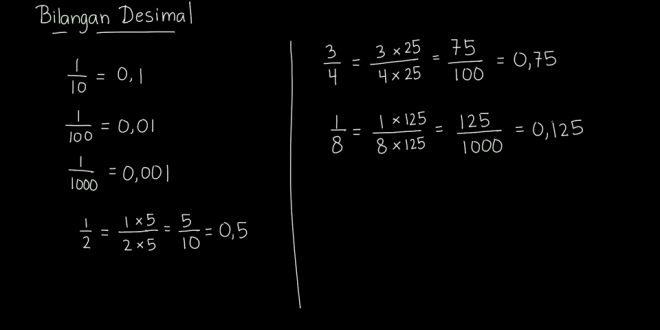 Bilangan Desimal
1/10 = 0,1
1/100 = 0,01
1/1000 = 0,001
1/2 = 1 × 5 / 2 × 5 = 5/10 = 0,5
3/4 = 3 × 25 / 4 × 25 = 75/100 = 0,75
1/8 = 1 × 125 / 8 × 125 = 125/1000 = 0,125